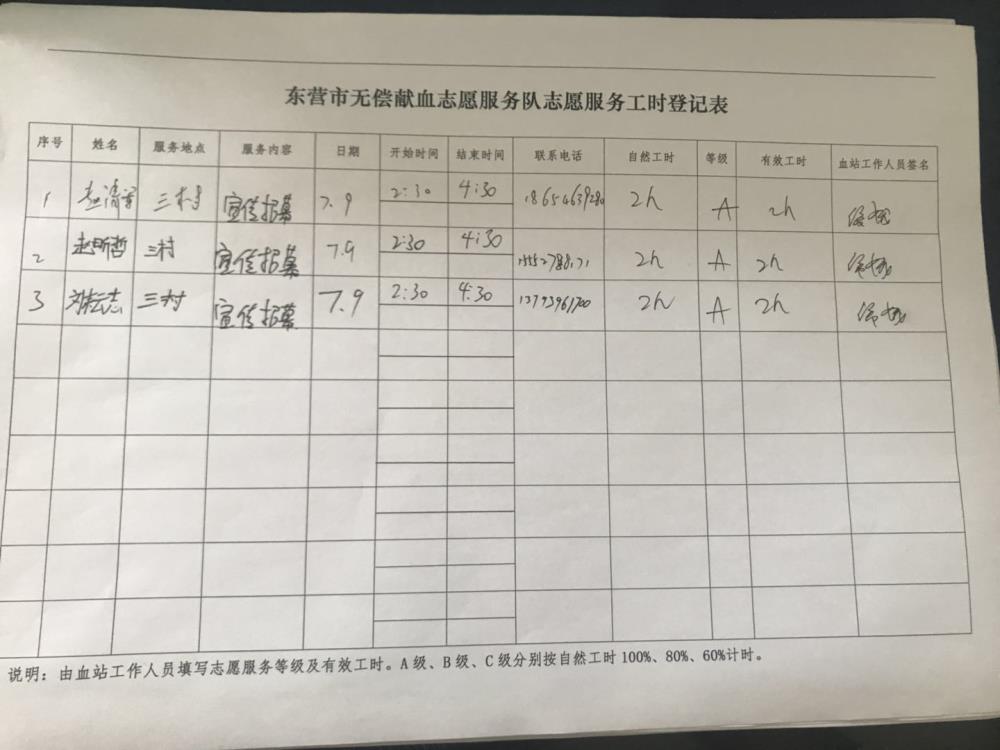 东营市无偿献血志愿服务队志愿服务工时登记表
序号 姓名 服务地点 服务内容 日期 开始时间 结束时间 联系电话 自然工时 等级 有效工时 血站工作人员签名
1 三村 宣传招募 7.9 2:30 4:30 18654639280 2h A 2h
2 赵昕哲 三村 宣传招募 7.9 2:30 4:30 2h A 2h
3 刘耘志 三村 宣传招募 7.9 2:30 4:30 13793961700 2h A 2h
说明：由血站工作人员填写志愿服务等级及有效工时。A级、B级、C级分别按自然工时100%、80%、60%计时。